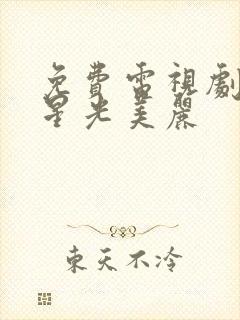 免費電視劇
星光美麗
東天不冷